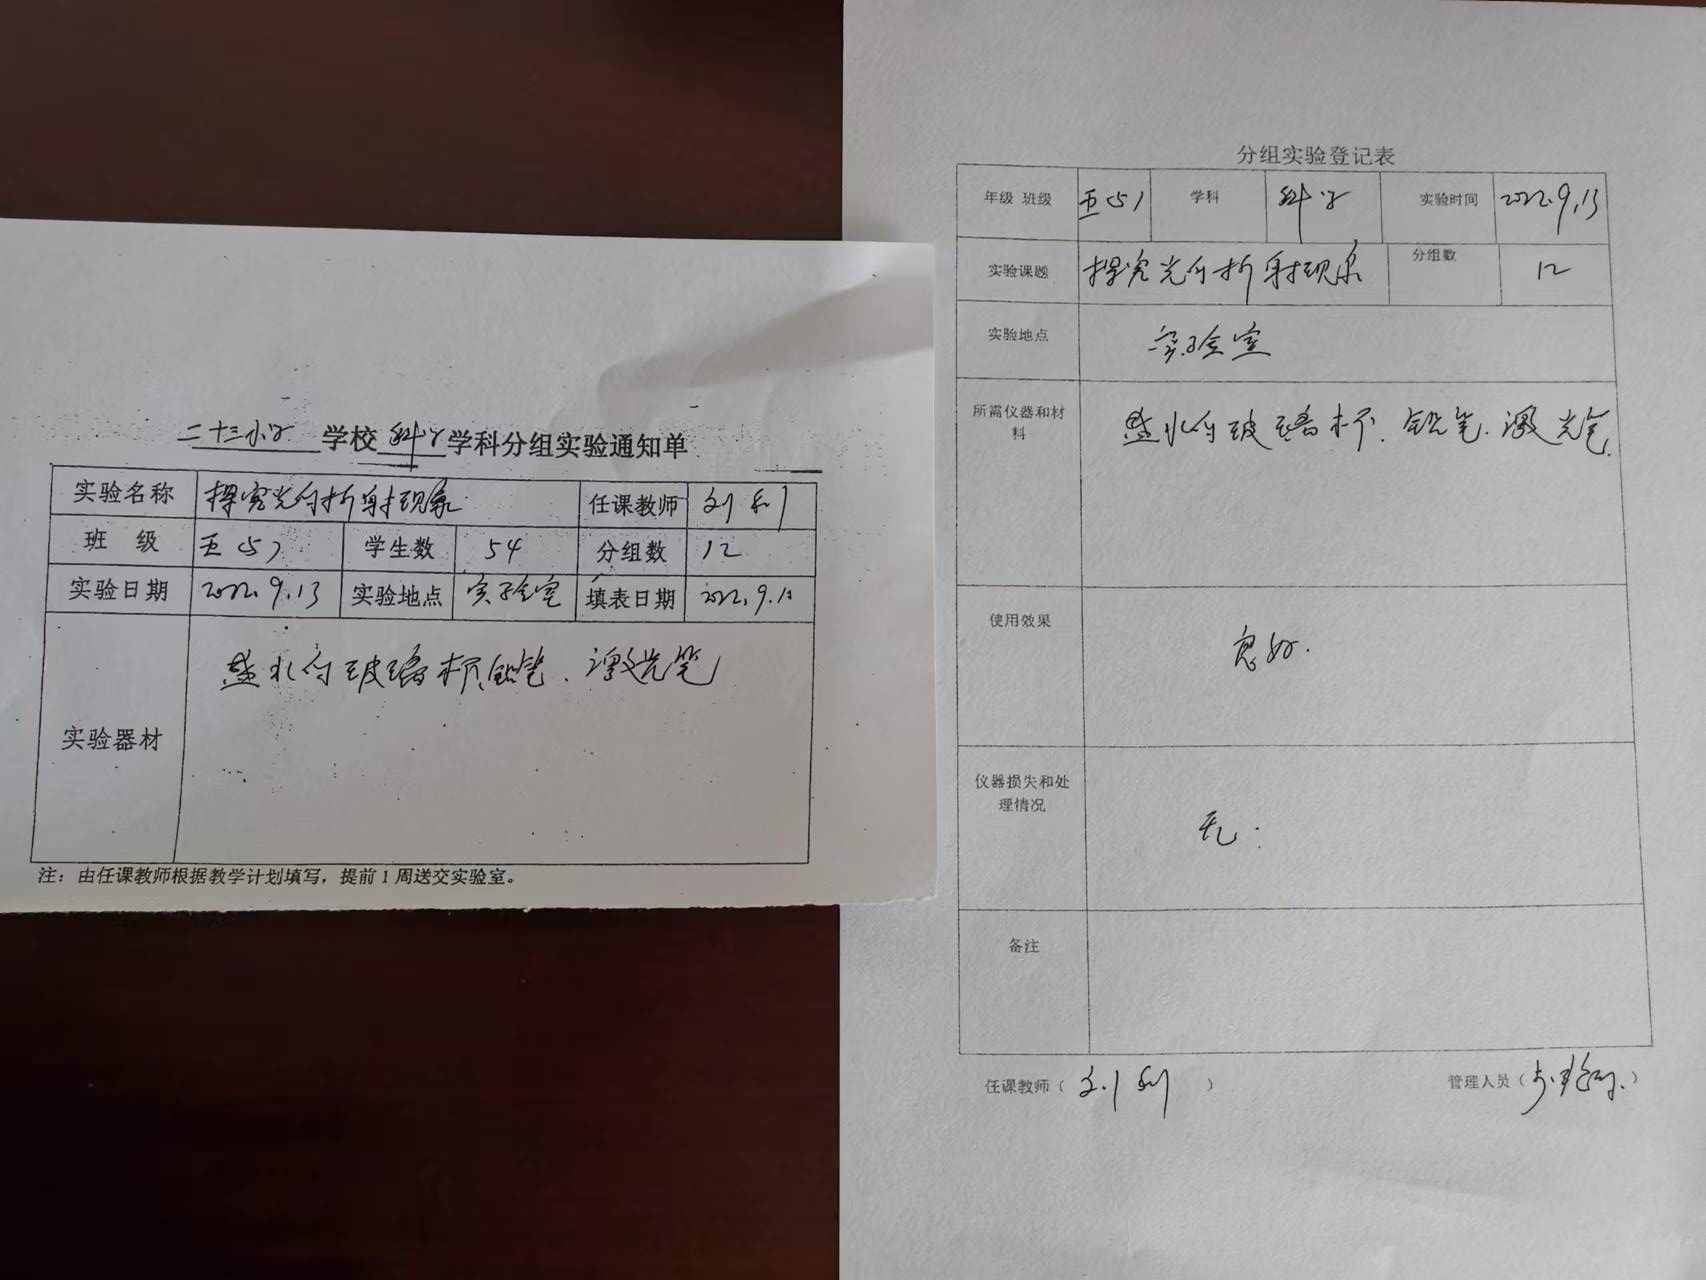 二十三小学 学校 科学 学科分组实验通知单
实验名称 探究光的折射现象 任课教师 刘利
班 级 五(5) 学生数 54 分组数 12
实验日期 2022.9.13 实验地点 实验室 填表日期 2022.9.10
实验器材 盛水的玻璃杯、铅笔、激光笔
注：由任课教师根据教学计划填写，提前1周送交实验室。
分组实验登记表
年级 班级 五(5) 学科 科学 实验时间 2022.9.13
实验课题 探究光的折射现象 分组数 12
实验地点 实验室
所需仪器和材料 盛水的玻璃杯、铅笔、激光笔.
使用效果 良好.
仪器损失和处理情况 无.
备注
任课教师（刘利） 管理人员（ ）